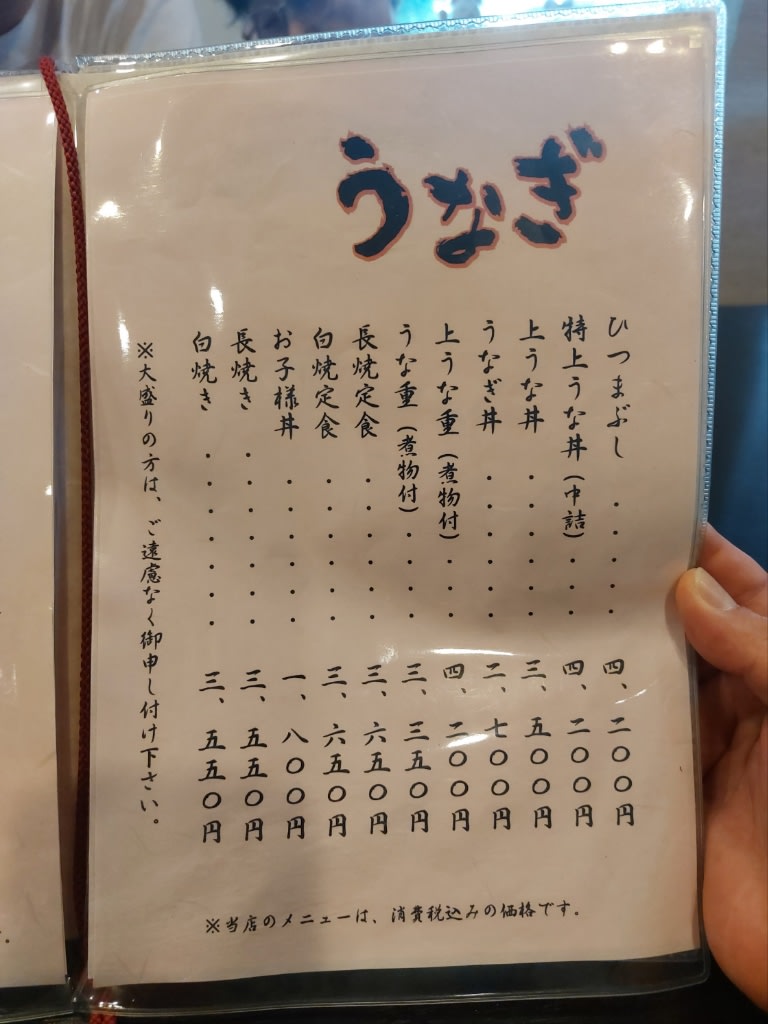 うなぎ
ひつまぶし・・・・・四、二〇〇円
特上うな丼(中詰)・・・四、二〇〇円
上うな丼・・・・・・三、五〇〇円
うなぎ丼・・・・・・二、七〇〇円
上うな重(煮物付)・・・四、二〇〇円
うな重(煮物付)・・・・三、三五〇円
長焼定食・・・・・・三、六五〇円
白焼定食・・・・・・三、六五〇円
お子様丼・・・・・・一、八〇〇円
長焼き・・・・・・・三、五五〇円
白焼き・・・・・・・三、五五〇円
※大盛りの方は、ご遠慮なく御申し付け下さい。
※当店のメニューは、消費税込みの価格です。